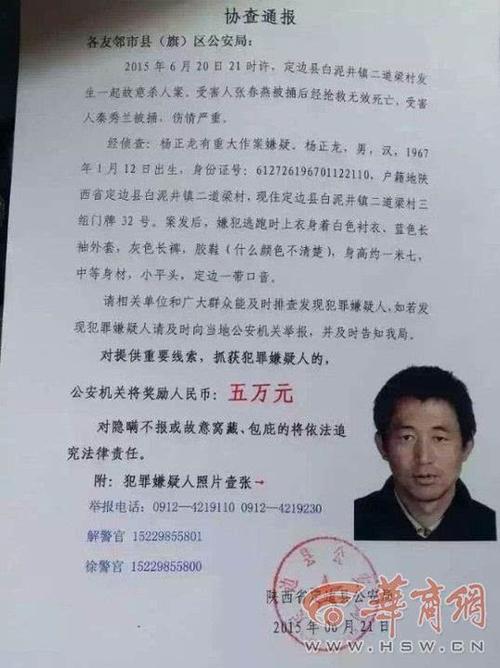 协查通报
各友邻市县（旗）区公安局：
2015年6月20日21时许，定边县白泥井镇二道梁村发
生一起故意杀人案。受害人张春燕被捅后经抢救无效死亡，受害
人秦秀兰被捅，伤情严重。
经侦查：杨正龙有重大作案嫌疑。杨正龙，男，汉，1967
年1月12日出生，身份证号：612726196701122110，户籍地陕
西省定边县白泥井镇二道梁村，现住定边县白泥井镇二道梁村三
组门牌32号。案发后，嫌犯逃跑时上衣身着白色衬衣、蓝色长
袖外套，灰色长裤，胶鞋（什么颜色不清楚），身高约一米七，
中等身材，小平头，定边一带口音。
请相关单位和广大群众能及时排查发现犯罪嫌疑人，如若发
现犯罪嫌疑人请及时向当地公安机关举报，并及时告知我局。
对提供重要线索，抓获犯罪嫌疑人的，
公安机关将奖励人民币：五万元
对隐瞒不报或故意窝藏、包庇的将依法追
究法律责任。
附：犯罪嫌疑人照片壹张→
举报电话：0912—4219110 0912—4219230
解警官 15229855801
徐警官 15229855800
陕西省定边县公安局
2015年06月21日
华商网
WWW.HSW.CN